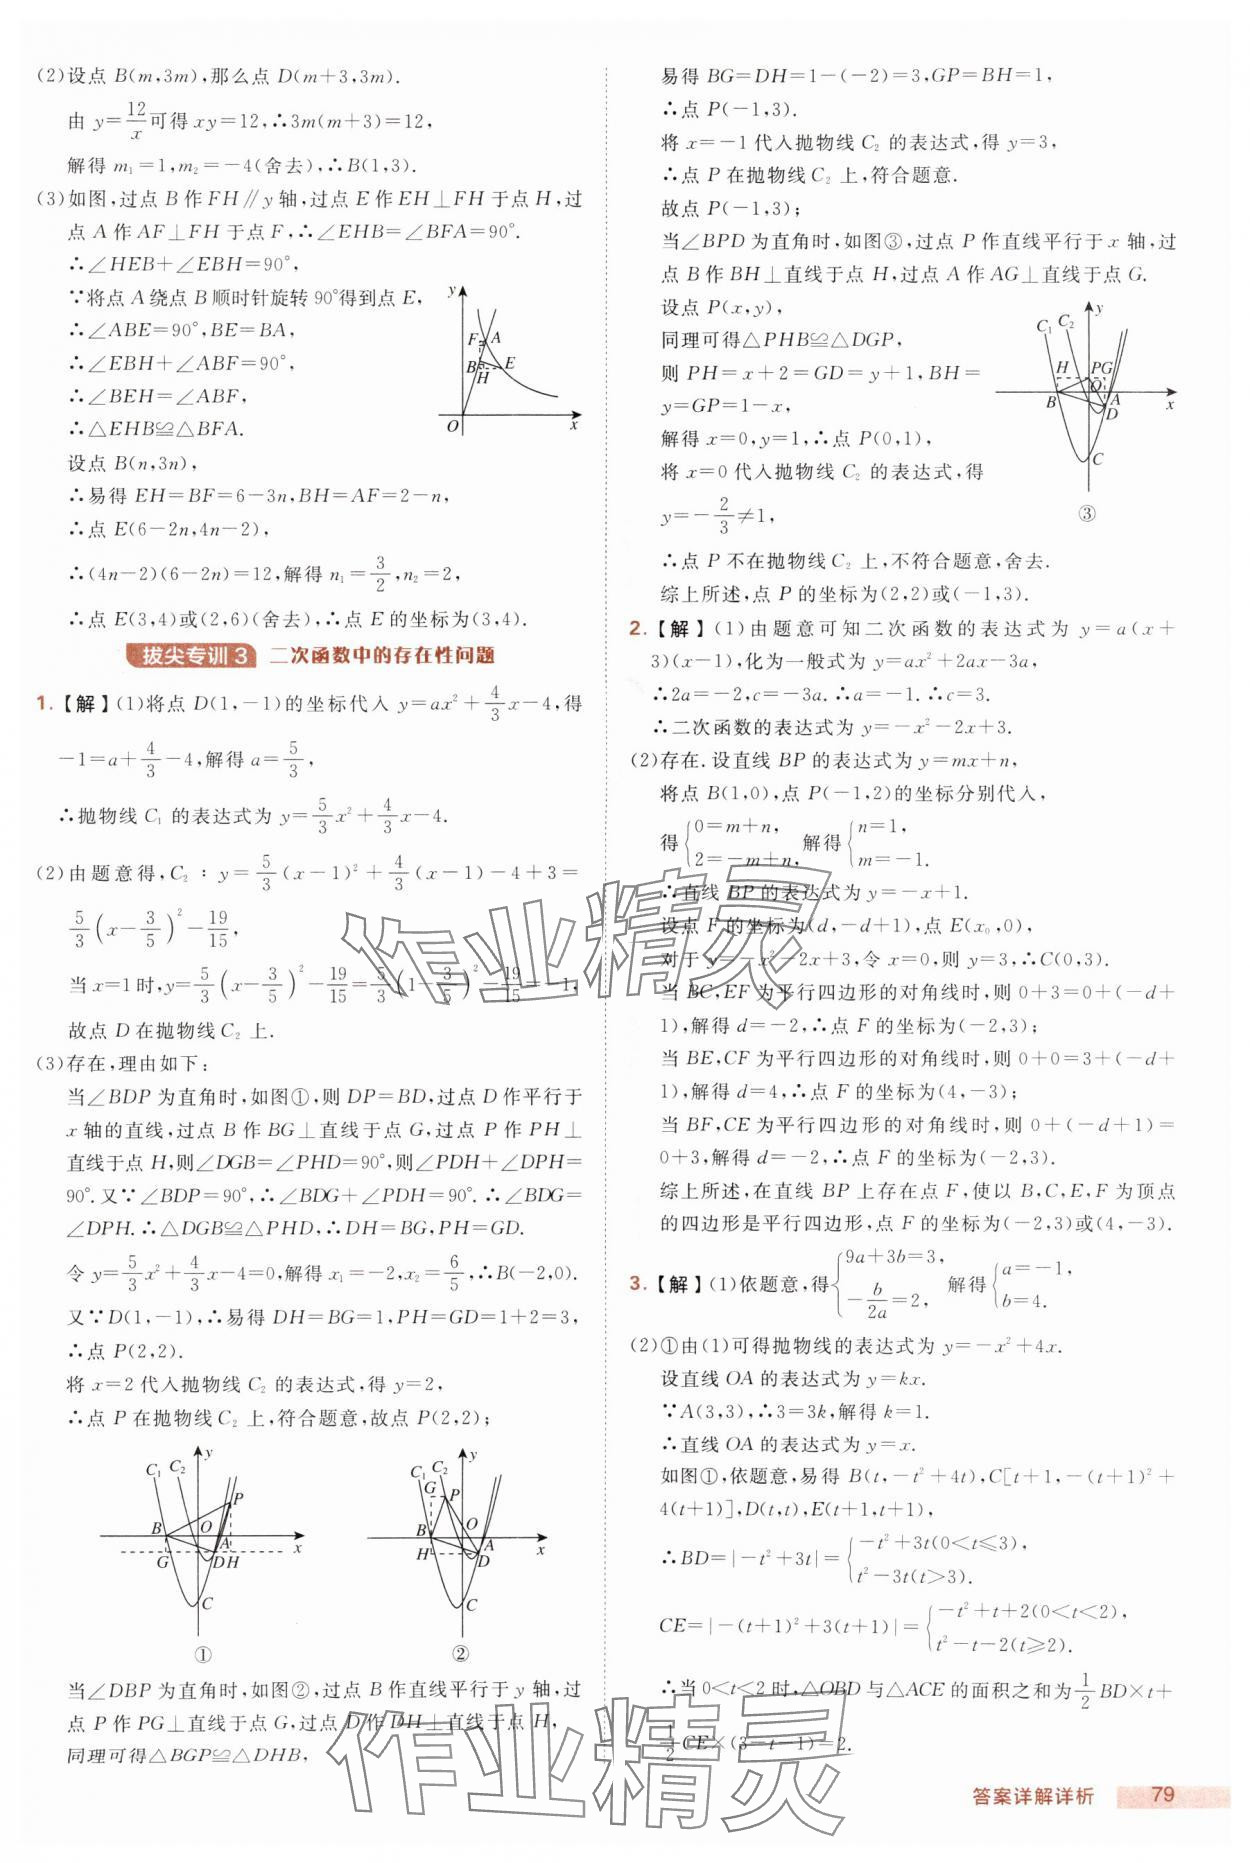 (2)设点 B(m,3m),那么点 D(m+3,3m).
由 y=12/x可得 xy=12,∴3m(m+3)=12,
解得 m₁=1,m₂=-4(舍去),∴B(1,3).
(3)如图,过点 B 作 FH∥y 轴,过点 E 作 EH⊥FH 于点 H,过
点 A 作 AF⊥FH 于点 F,∴∠EHB=∠BFA=90°.
∴∠HEB+∠EBH=90°,
∵将点 A 绕点 B 顺时针旋转 90°得到点 E,
∴∠ABE=90°,BE=BA,
∴∠EBH+∠ABF=90°,
∴∠BEH=∠ABF,
∴△EHB≌△BFA.
设点 B(n,3n),
∴易得 EH=BF=6-3n,BH=AF=2-n,
∴点 E(6-2n,4n-2),
∴(4n-2)(6-2n)=12,解得 n₁=3/2,n₂=2,
∴点 E(3,4)或(2,6)(舍去),∴点 E 的坐标为(3,4).
y
F A
B E
H
O x
拔尖专训 3 二次函数中的存在性问题
1.【解】(1)将点 D(1,-1)的坐标代入 y=ax²+4/3x-4,得
-1=a+4/3-4,解得 a=5/3,
∴抛物线 C₁ 的表达式为 y=5/3x²+4/3x-4.
(2)由题意得,C₂:y=5/3(x-1)²+4/3(x-1)-4+3=
5/3(x-3/5)²-19/15,
当 x=1 时,y=5/3(x-3/5)²-19/15=5/3(1-3/5)²-19/15=-1,
故点 D 在抛物线 C₂ 上.
(3)存在,理由如下:
当∠BDP 为直角时,如图①,则 DP=BD,过点 D 作平行于
x 轴的直线,过点 B 作 BG⊥直线于点 G,过点 P 作 PH⊥
直线于点 H,则∠DGB=∠PHD=90°,则∠PDH+∠DPH=
90°.又∵∠BDP=90°,∴∠BDG+∠PDH=90°.∴∠BDG=
∠DPH.∴△DGB≌△PHD,∴DH=BG,PH=GD.
令 y=5/3x²+4/3x-4=0,解得 x₁=-2,x₂=6/5,∴B(-2,0).
又∵D(1,-1),∴易得 DH=BG=1,PH=GD=1+2=3,
∴点 P(2,2).
将 x=2 代入抛物线 C₂ 的表达式,得 y=2,
∴点 P 在抛物线 C₂ 上,符合题意,故点 P(2,2);
C₁ C₂ y
P
B O A x
G DH
C
①
C₁ C₂ y
G P
B O A x
H D
C
②
当∠DBP 为直角时,如图②,过点 B 作直线平行于 y 轴,过
点 P 作 PG⊥直线于点 G,过点 D 作 DH⊥直线于点 H,
同理可得△BGP≌△DHB,
易得 BG=DH=1-(-2)=3,GP=BH=1,
∴点 P(-1,3).
将 x=-1 代入抛物线 C₂ 的表达式,得 y=3,
∴点 P 在抛物线 C₂ 上,符合题意.
故点 P(-1,3);
当∠BPD 为直角时,如图③,过点 P 作直线平行于 x 轴,过
点 B 作 BH⊥直线于点 H,过点 A 作 AG⊥直线于点 G.
设点 P(x,y),
同理可得△PHB≌△DGP,
则 PH=x+2=GD=y+1,BH=
y=GP=1-x,
解得 x=0,y=1,∴点 P(0,1),
将 x=0 代入抛物线 C₂ 的表达式,得
y=-2/3≠1,
C₁ C₂ y
H PG
B O A x
D
C
③
∴点 P 不在抛物线 C₂ 上,不符合题意,舍去.
综上所述,点 P 的坐标为(2,2)或(-1,3).
2.【解】(1)由题意可知二次函数的表达式为 y=a(x+
3)(x-1),化为一般式为 y=ax²+2ax-3a,
∴2a=-2,c=-3a.∴a=-1.∴c=3.
∴二次函数的表达式为 y=-x²-2x+3.
(2)存在.设直线 BP 的表达式为 y=mx+n,
将点 B(1,0),点 P(-1,2)的坐标分别代入,
得{0=m+n, 2=-m+n, 解得{n=1, m=-1.
∴直线 BP 的表达式为 y=-x+1.
设点 F 的坐标为(d,-d+1),点 E(x₀,0),
对于 y=-x²-2x+3,令 x=0,则 y=3,∴C(0,3).
当 BC,EF 为平行四边形的对角线时,则 0+3=0+(-d+
1),解得 d=-2,∴点 F 的坐标为(-2,3);
当 BE,CF 为平行四边形的对角线时,则 0+0=3+(-d+
1),解得 d=4,∴点 F 的坐标为(4,-3);
当 BF,CE 为平行四边形的对角线时,则 0+(-d+1)=
0+3,解得 d=-2,∴点 F 的坐标为(-2,3).
综上所述,在直线 BP 上存在点 F,使以 B,C,E,F 为顶点
的四边形是平行四边形,点 F 的坐标为(-2,3)或(4,-3).
3.【解】(1)依题意,得{9a+3b=3, -b/2a=2, 解得{a=-1, b=4.
(2)①由(1)可得抛物线的表达式为 y=-x²+4x.
设直线 OA 的表达式为 y=kx.
∵A(3,3),∴3=3k,解得 k=1.
∴直线 OA 的表达式为 y=x.
如图①,依题意,易得 B(t,-t²+4t),C[t+1,-(t+1)²+
4(t+1)],D(t,t),E(t+1,t+1),
∴BD=|-t²+3t|={-t²+3t(0<t≤3), t²-3t(t>3).
CE=|-(t+1)²+3(t+1)|={-t²+t+2(0<t<2), t²-t-2(t≥2).
∴当 0<t<2 时,△OBD 与△ACE 的面积之和为1/2BD×t+
1/2CE×(3-t-1)=2.
作业精灵
作业精灵
答案详解详析 79